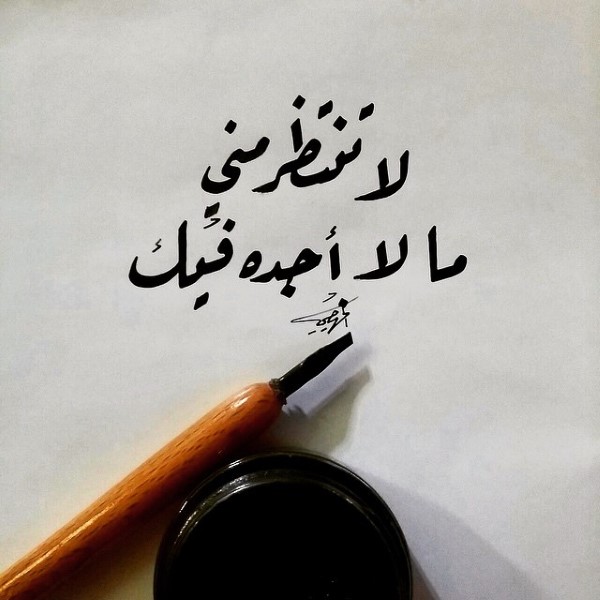 لا تنتظر مني
ما لا أجده فيك